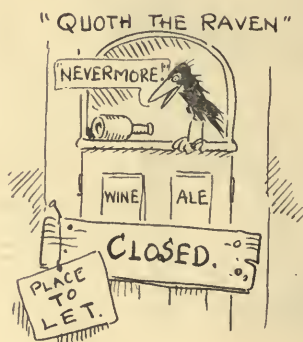 "QUOTH THE RAVEN"
"NEVERMORE."
WINE
ALE
CLOSED.
PLACE
TO
LET.